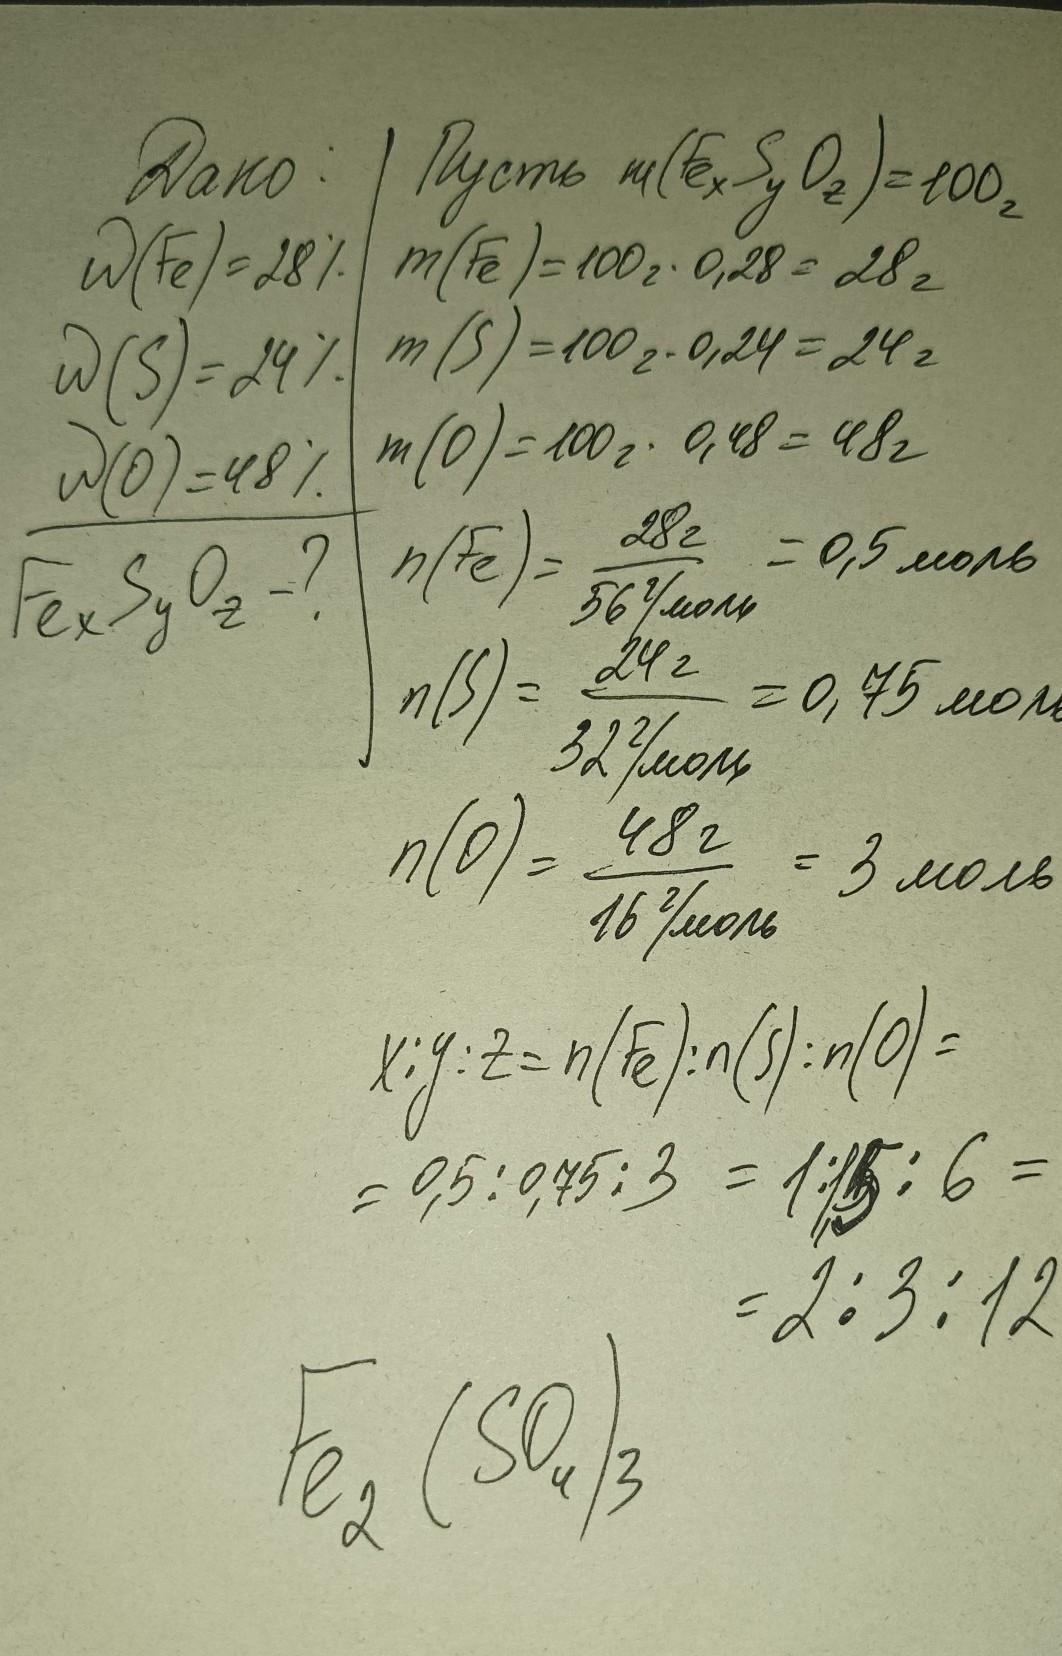 Дано:
W(Fe)=28%.
W(S)=24%.
W(O)=48%.
FexSyOz-?
Пусть m(FexSyOz)=100г
m(Fe)=100г·0,28=28г
m(S)=100г·0,24=24г
m(O)=100г·0,48=48г
n(Fe)=28г/56г/моль=0,5 моль
n(S)=24г/32г/моль=0,75 моль
n(O)=48г/16г/моль=3 моль
x:y:z=n(Fe):n(S):n(O)=
=0,5:0,75:3=1:1,5:6=
=2:3:12
Fe2(SO4)3